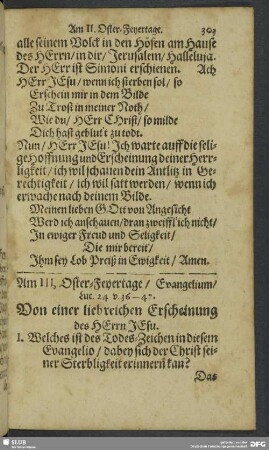 Am II. Oster-Feyertage. 303
alle seinem Volck in den Höfen am Hause
des HErrn/ in dir/ Jerusalem/ Halleluja.
Der HErr ist Simoni erschienen. Ach
HErr JEsu/ wenn ich sterben sol/ so
Erschein mir in dem Bilde
Zu Trost in meiner Noth/
Wie du/ HErr Christ/ so milde
Dich hast geblut't zu todt.
Nun/ HErr JEsu! Ich warte auff die seli-
ge Hoffnung und Erscheinung deiner Herr-
ligkeit/ ich wil schauen dein Antlitz in Ge-
rechtigkeit/ ich wil satt werden/ wenn ich
erwache nach deinem Bilde.
Meinen lieben GOtt von Angesicht
Werd ich anschauen/ dran zweiffl ich nicht/
In ewiger Freud und Seligkeit/
Die mir bereit/
Ihm sey Lob Preiß in Ewigkeit/ Amen.
Am III. Oster-Feyertage/ Evangelium/
Luc. 24 v. 36-47.
Von einer liebreichen Erscheinung
des HErrn JEsu.
1. Welches ist des Todes-Zeichen in diesem
Evangelio/ dabey sich der Christ sei-
ner Sterbligkeit erinnern kan?
Das
SLUB